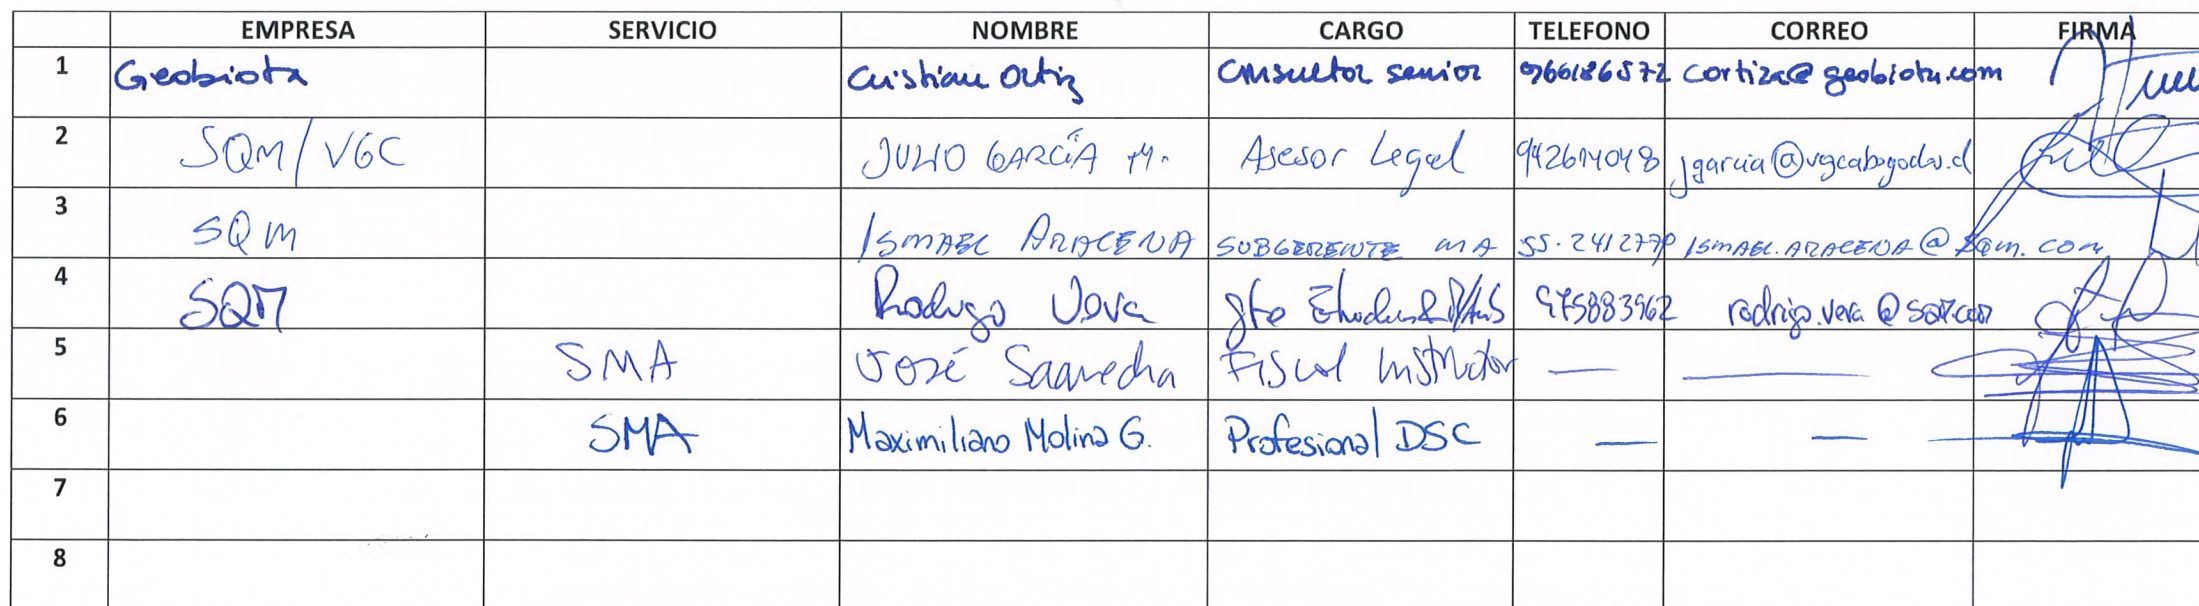 EMPRESA SERVICIO NOMBRE CARGO TELEFONO CORREO FIRMA
1 Geobiota Cristian Ortiz Consultor senior 966186572 cortiza@geobiota.com
2 SQM/VGC JULIO GARCÍA M. Asesor Legal 942614048 jgarcia@vgcabogados.cl
3 SQM ISMAEL ARACENA SUBGERENTE MA 55-2412779 ISMAEL.ARACENA@sqm.com
4 SQM Rodrigo Vera Gte 975883962 rodrigo.vera@sqm.com
5 SMA José Saavedra Fiscal Instructor — —
6 SMA Maximiliano Molina G. Profesional DSC — —
7
8